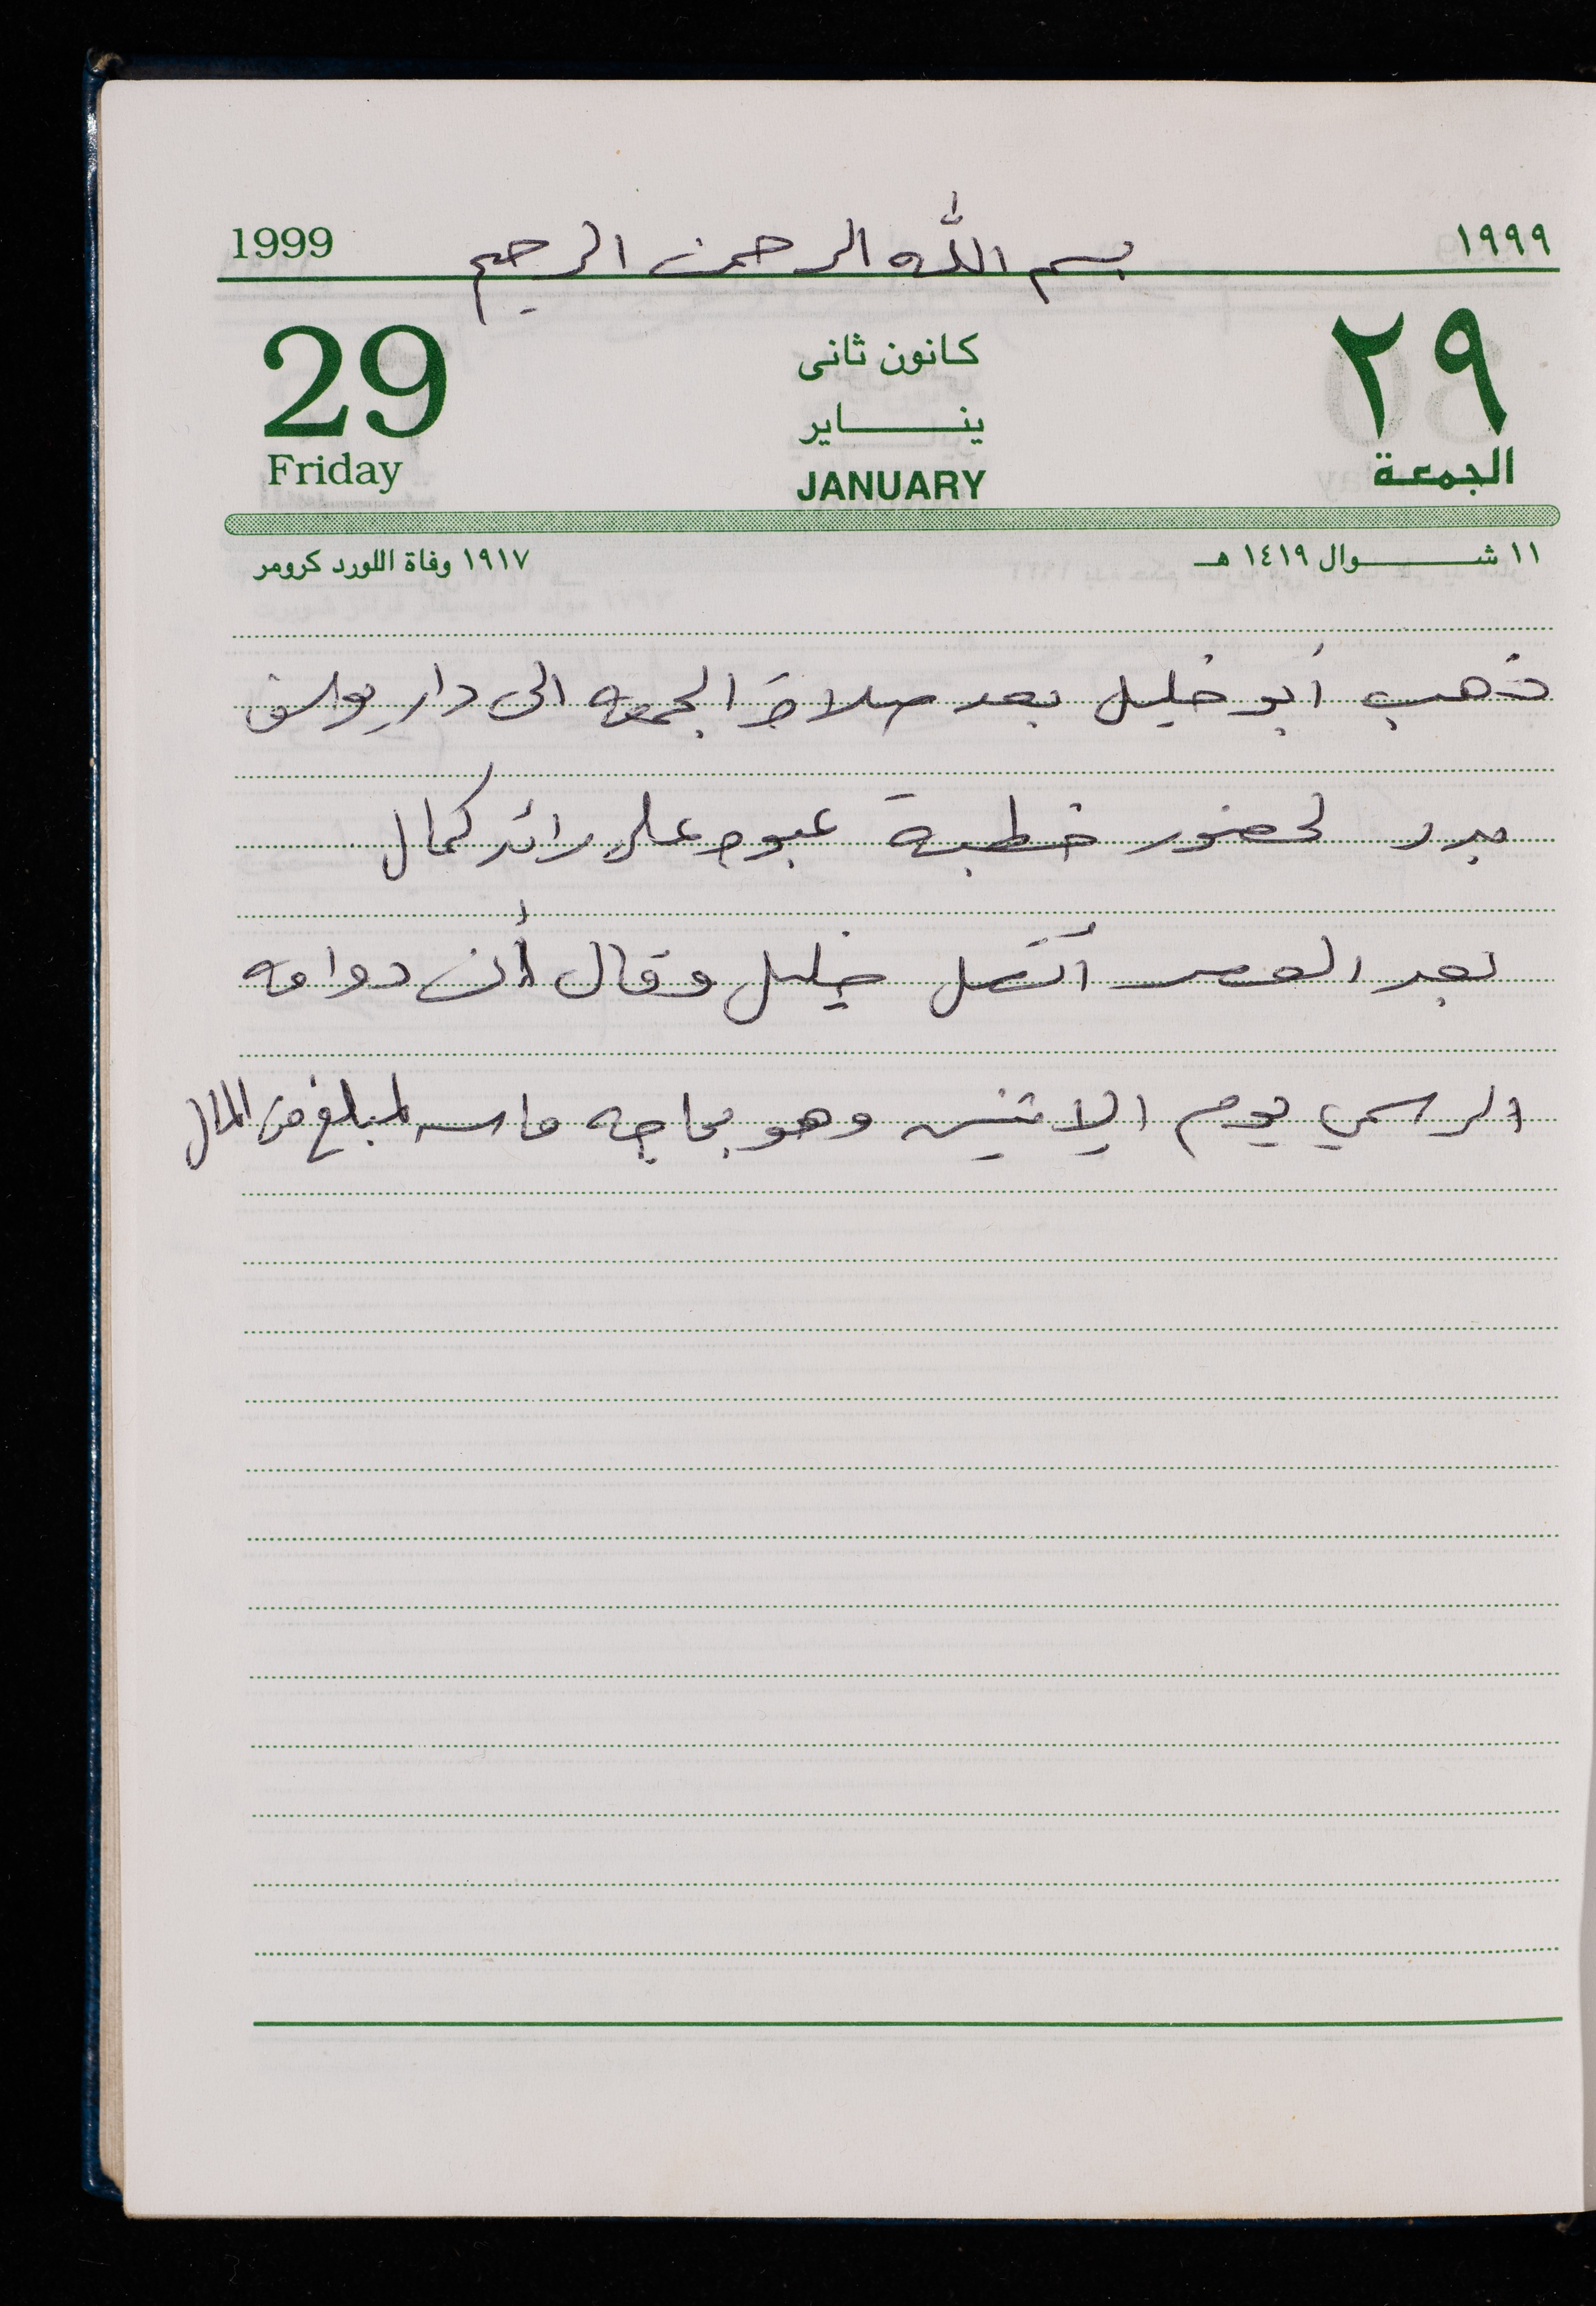 1999 بسم الله الرحمن الرحيم ١٩٩٩
29 كانون ثانى ٢٩
ينـــاير
Friday JANUARY الجمعة
١١ شـــوال ١٤١٩ هـ ١٩١٧ وفاة اللورد كرومر
ذهب أبو خليل بعد صلاة الجمعه الى دار يوسف
بدر لحضور خطبة عبود على رائد كمال
بعد العصر أتصل خليل وقال أن دوامه
الرسمي يوم الإثنين وهو بحاجه ماسه لمبلغ من المال